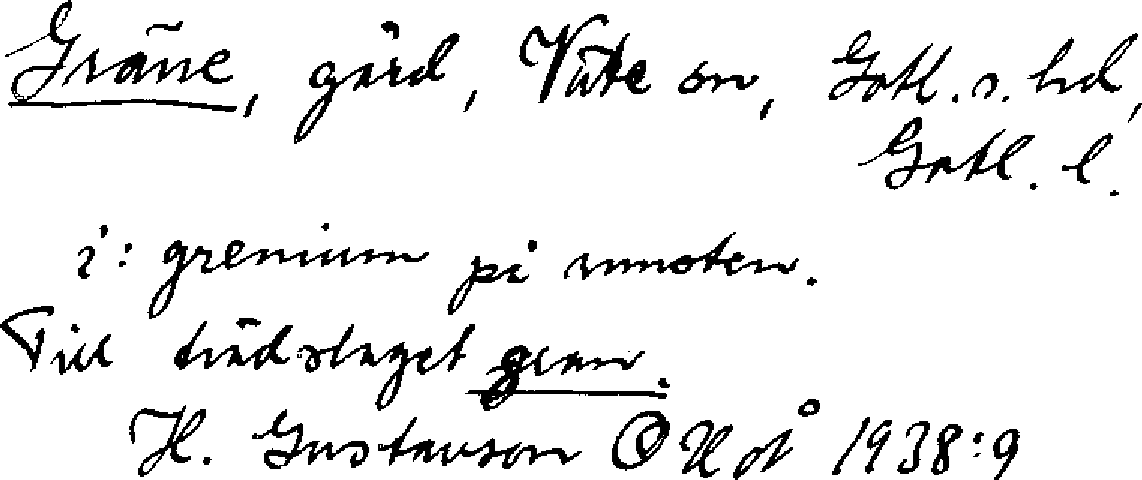 Gräne, gård, Väte sn, Gotl. s. hd,
Gotl. l.
i: grenium på runsten.
Till trädslaget gran.
H. Gustavson GHot 1938:9